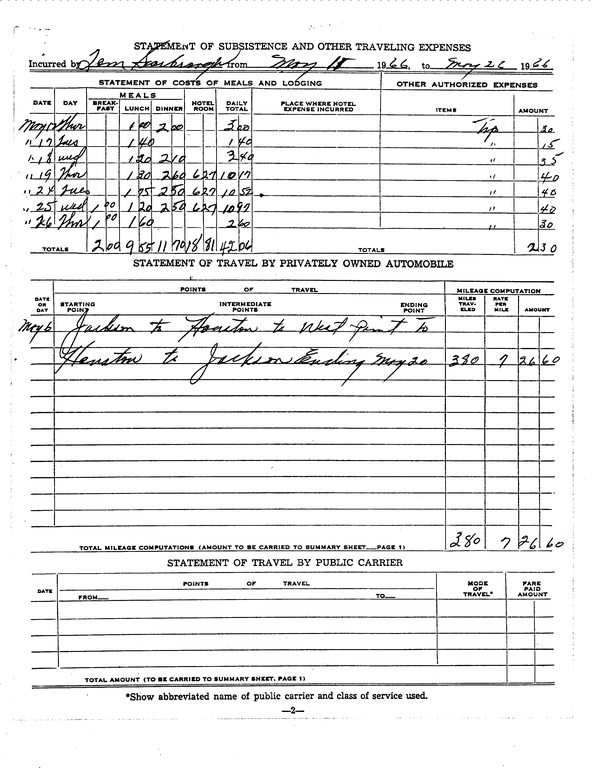 STATEMENT OF SUBSISTENCE AND OTHER TRAVELING EXPENSES
Incurred by Tom Scarbrough from May 1966, to May 26 1966
STATEMENT OF COSTS OF MEALS AND LODGING OTHER AUTHORIZED EXPENSES
MEALS
DATE DAY BREAK-FAST LUNCH DINNER HOTEL ROOM DAILY TOTAL PLACE WHERE HOTEL EXPENSE INCURRED ITEMS AMOUNT
May Thur 1 00 2 00 3 00 Tip 30
" 17 Tues 1 40 1 40 " 15
" 18 wed 1 20 2 10 3 40 " 35
" 19 Thur 1 30 2 60 6 27 10 17 " 40
" 24 Tues 1 75 2 50 6 27 10 52 " 40
" 25 wed 1 00 1 20 2 50 6 27 10 97 " 40
" 26 Thur 1 00 1 60 2 60 " 30
TOTALS 2 00 9 55 11 70 18 81 42 06 TOTALS 2 30
STATEMENT OF TRAVEL BY PRIVATELY OWNED AUTOMOBILE
POINTS OF TRAVEL MILEAGE COMPUTATION
DATE OR DAY STARTING POINT INTERMEDIATE POINTS ENDING POINT MILES TRAV-ELED RATE PER MILE AMOUNT
May 6 Jackson to Houston to West Point to
Houston to Jackson Ending May 20 380 7 26 60
TOTAL MILEAGE COMPUTATIONS (AMOUNT TO BE CARRIED TO SUMMARY SHEET PAGE 1) 380 7 26 60
STATEMENT OF TRAVEL BY PUBLIC CARRIER
DATE POINTS OF TRAVEL MODE OF TRAVEL* FARE PAID AMOUNT
FROM TO
TOTAL AMOUNT (TO BE CARRIED TO SUMMARY SHEET, PAGE 1)
*Show abbreviated name of public carrier and class of service used.
—2—